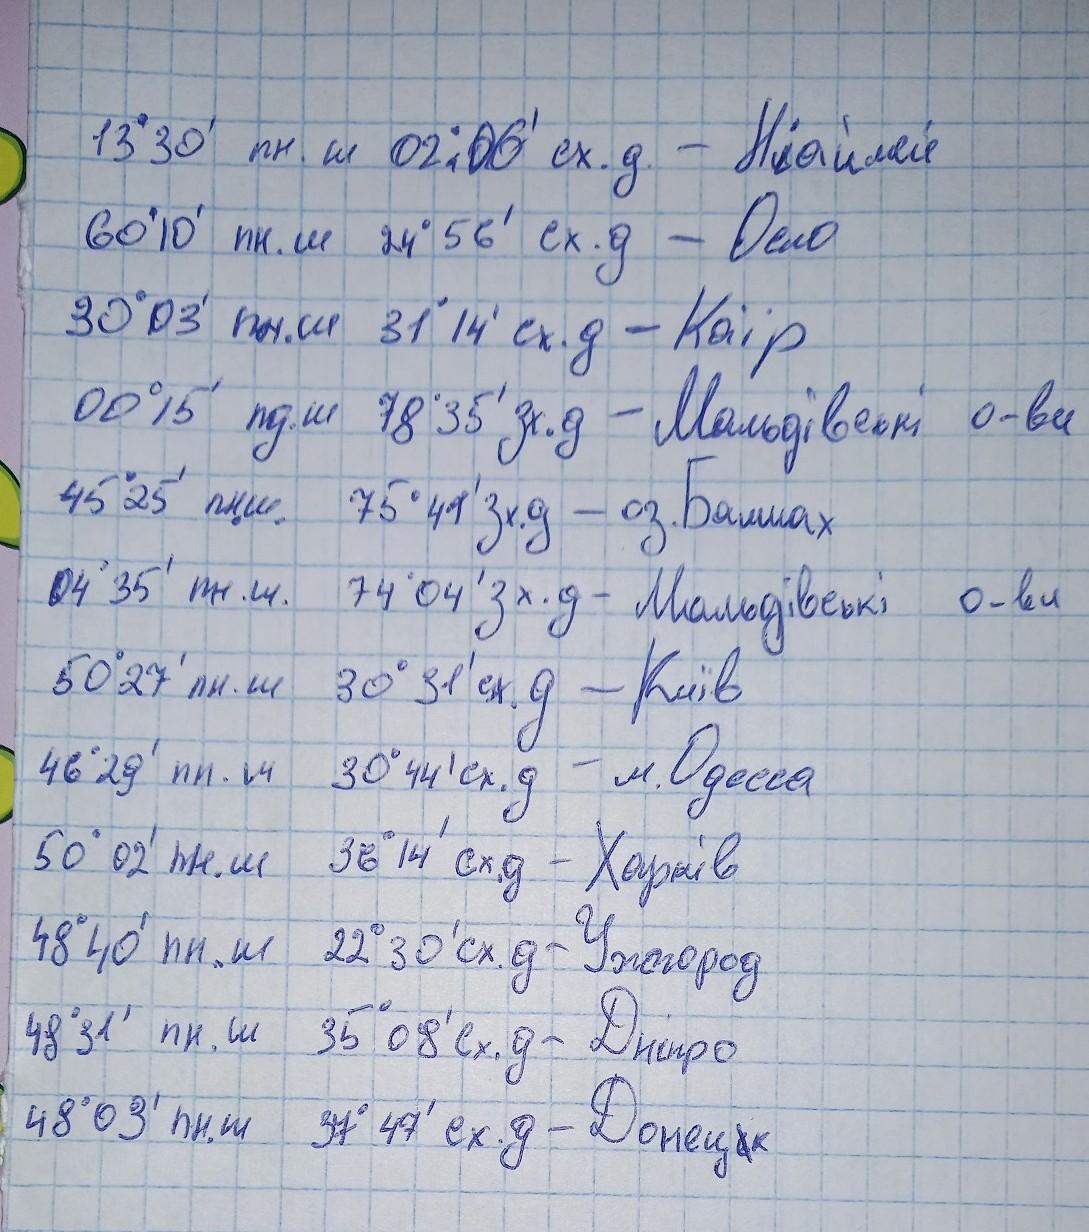 13°30' пн.ш 02°06' сх.д. – Ніаймей
60°10' пн.ш 24°56' сх.д – Осло
30°03' пн.ш 31°14' сх.д – Каір
00°15' пд.ш 78°35' Зх.д – Мальдівські о-ви
45°25' пн.ш. 75°41' Зх.д – оз.Балхах
04°35' пн.ш. 74°04' Зх.д – Мальдівські о-ви
50°27' пн.ш 30°31' сх.д – Київ
46°29' пн.ш 30°44' сх.д – м.Одесса
50°02' пн.ш 36°14' сх.д – Харків
48°40' пн.ш 22°30' сх.д – Ужгород
48°31' пн.ш 35°08' сх.д – Дніпро
48°03' пн.ш 37°47' сх.д – Донецк